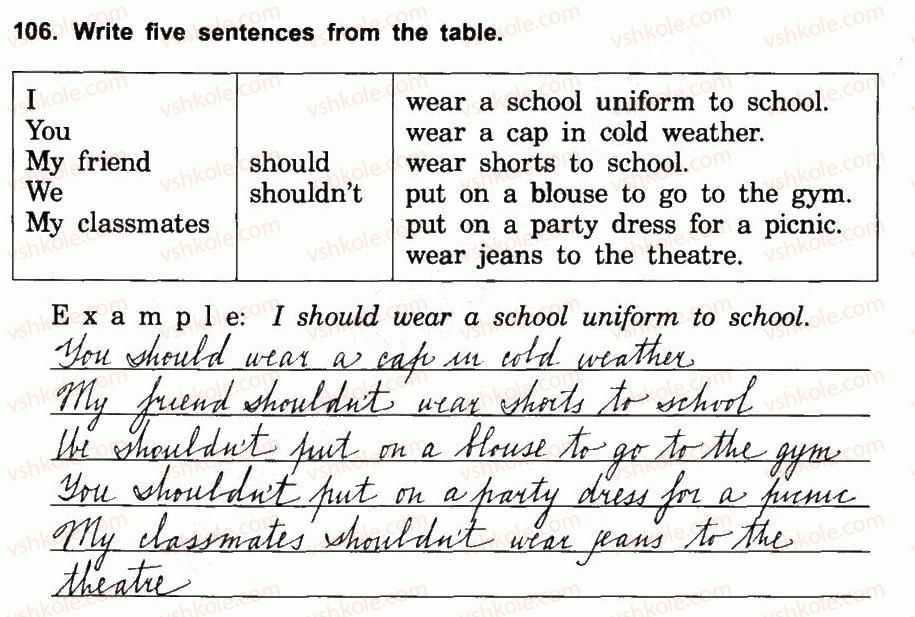 106. Write five sentences from the table.
I
You
My friend
We
My classmates
should
shouldn't
wear a school uniform to school.
wear a cap in cold weather.
wear shorts to school.
put on a blouse to go to the gym.
put on a party dress for a picnic.
wear jeans to the theatre.
Example: I should wear a school uniform to school.
You should wear a cap in cold weather
My friend shouldn't wear shorts to school
We shouldn't put on a blouse to go to the gym
You shouldn't put on a party dress for a picnic
My classmates shouldn't wear jeans to the
theatre
vshkole.com